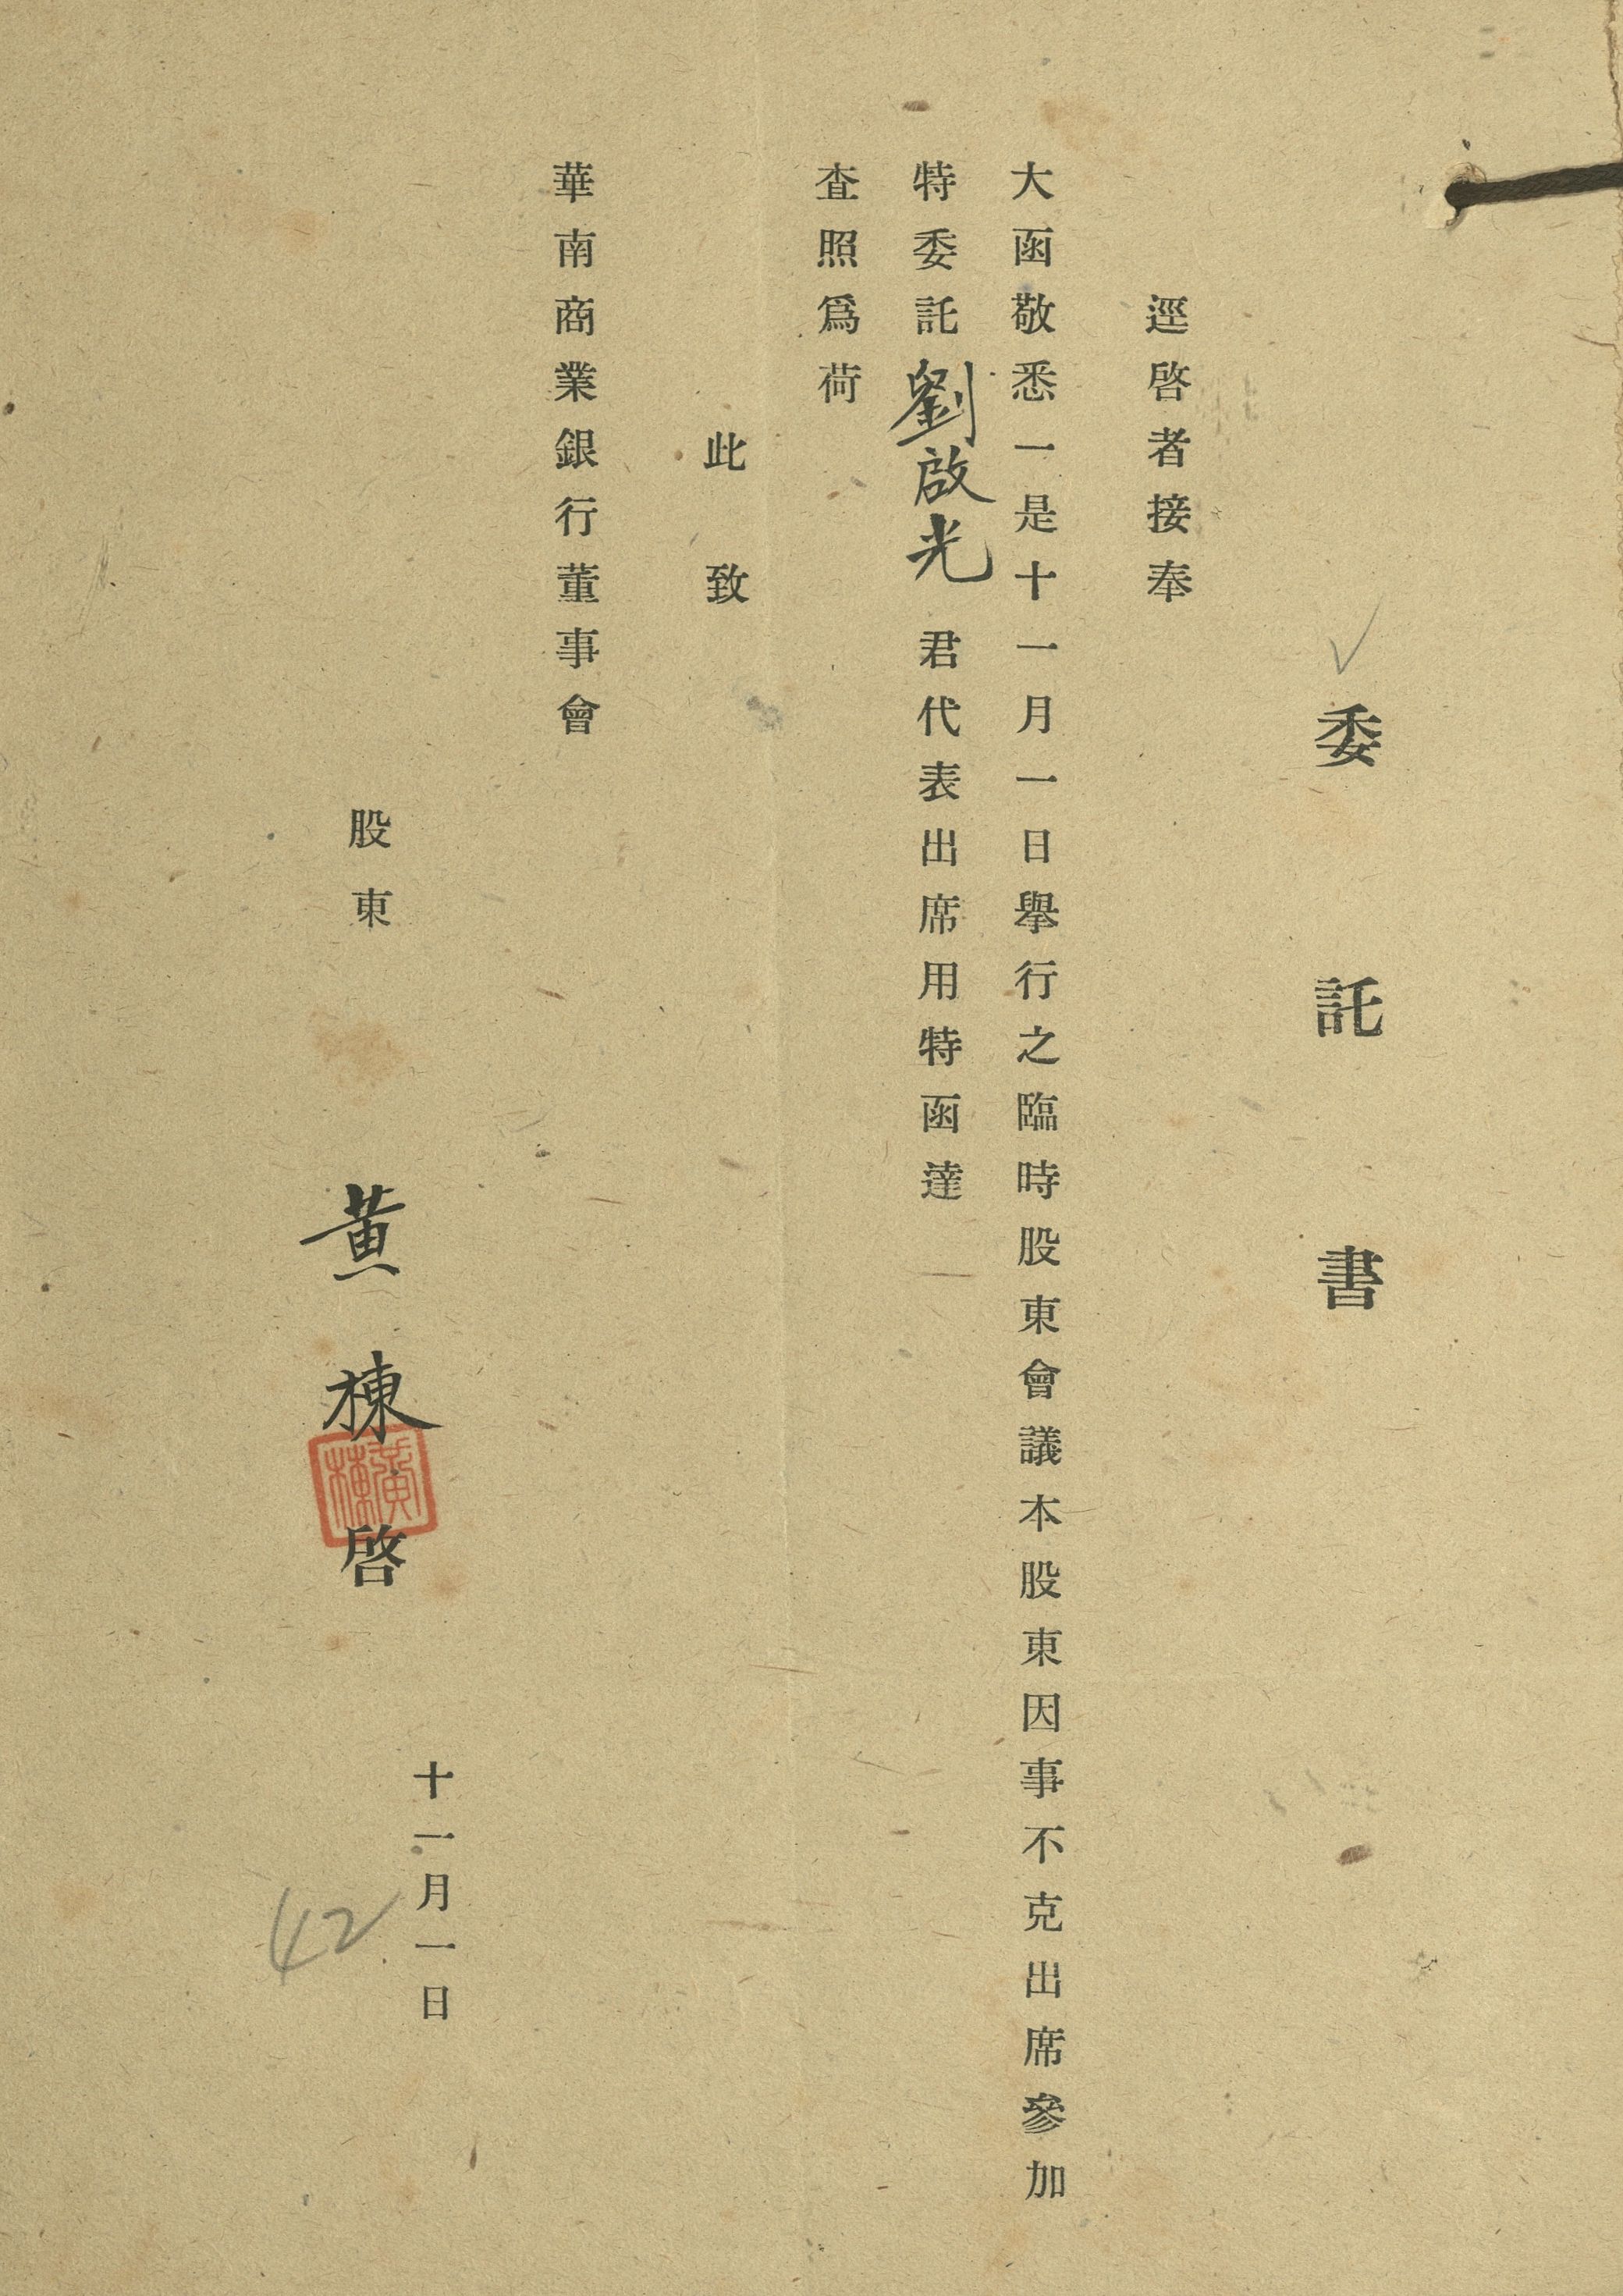 委託書
逕啓者接奉
大函敬悉一是十一月一日舉行之臨時股東會議本股東因事不克出席參加
特委託劉啟光君代表出席用特函達
查照爲荷
此致
華南商業銀行董事會
十一月一日
股東 黃棟 啓
黃棟
42